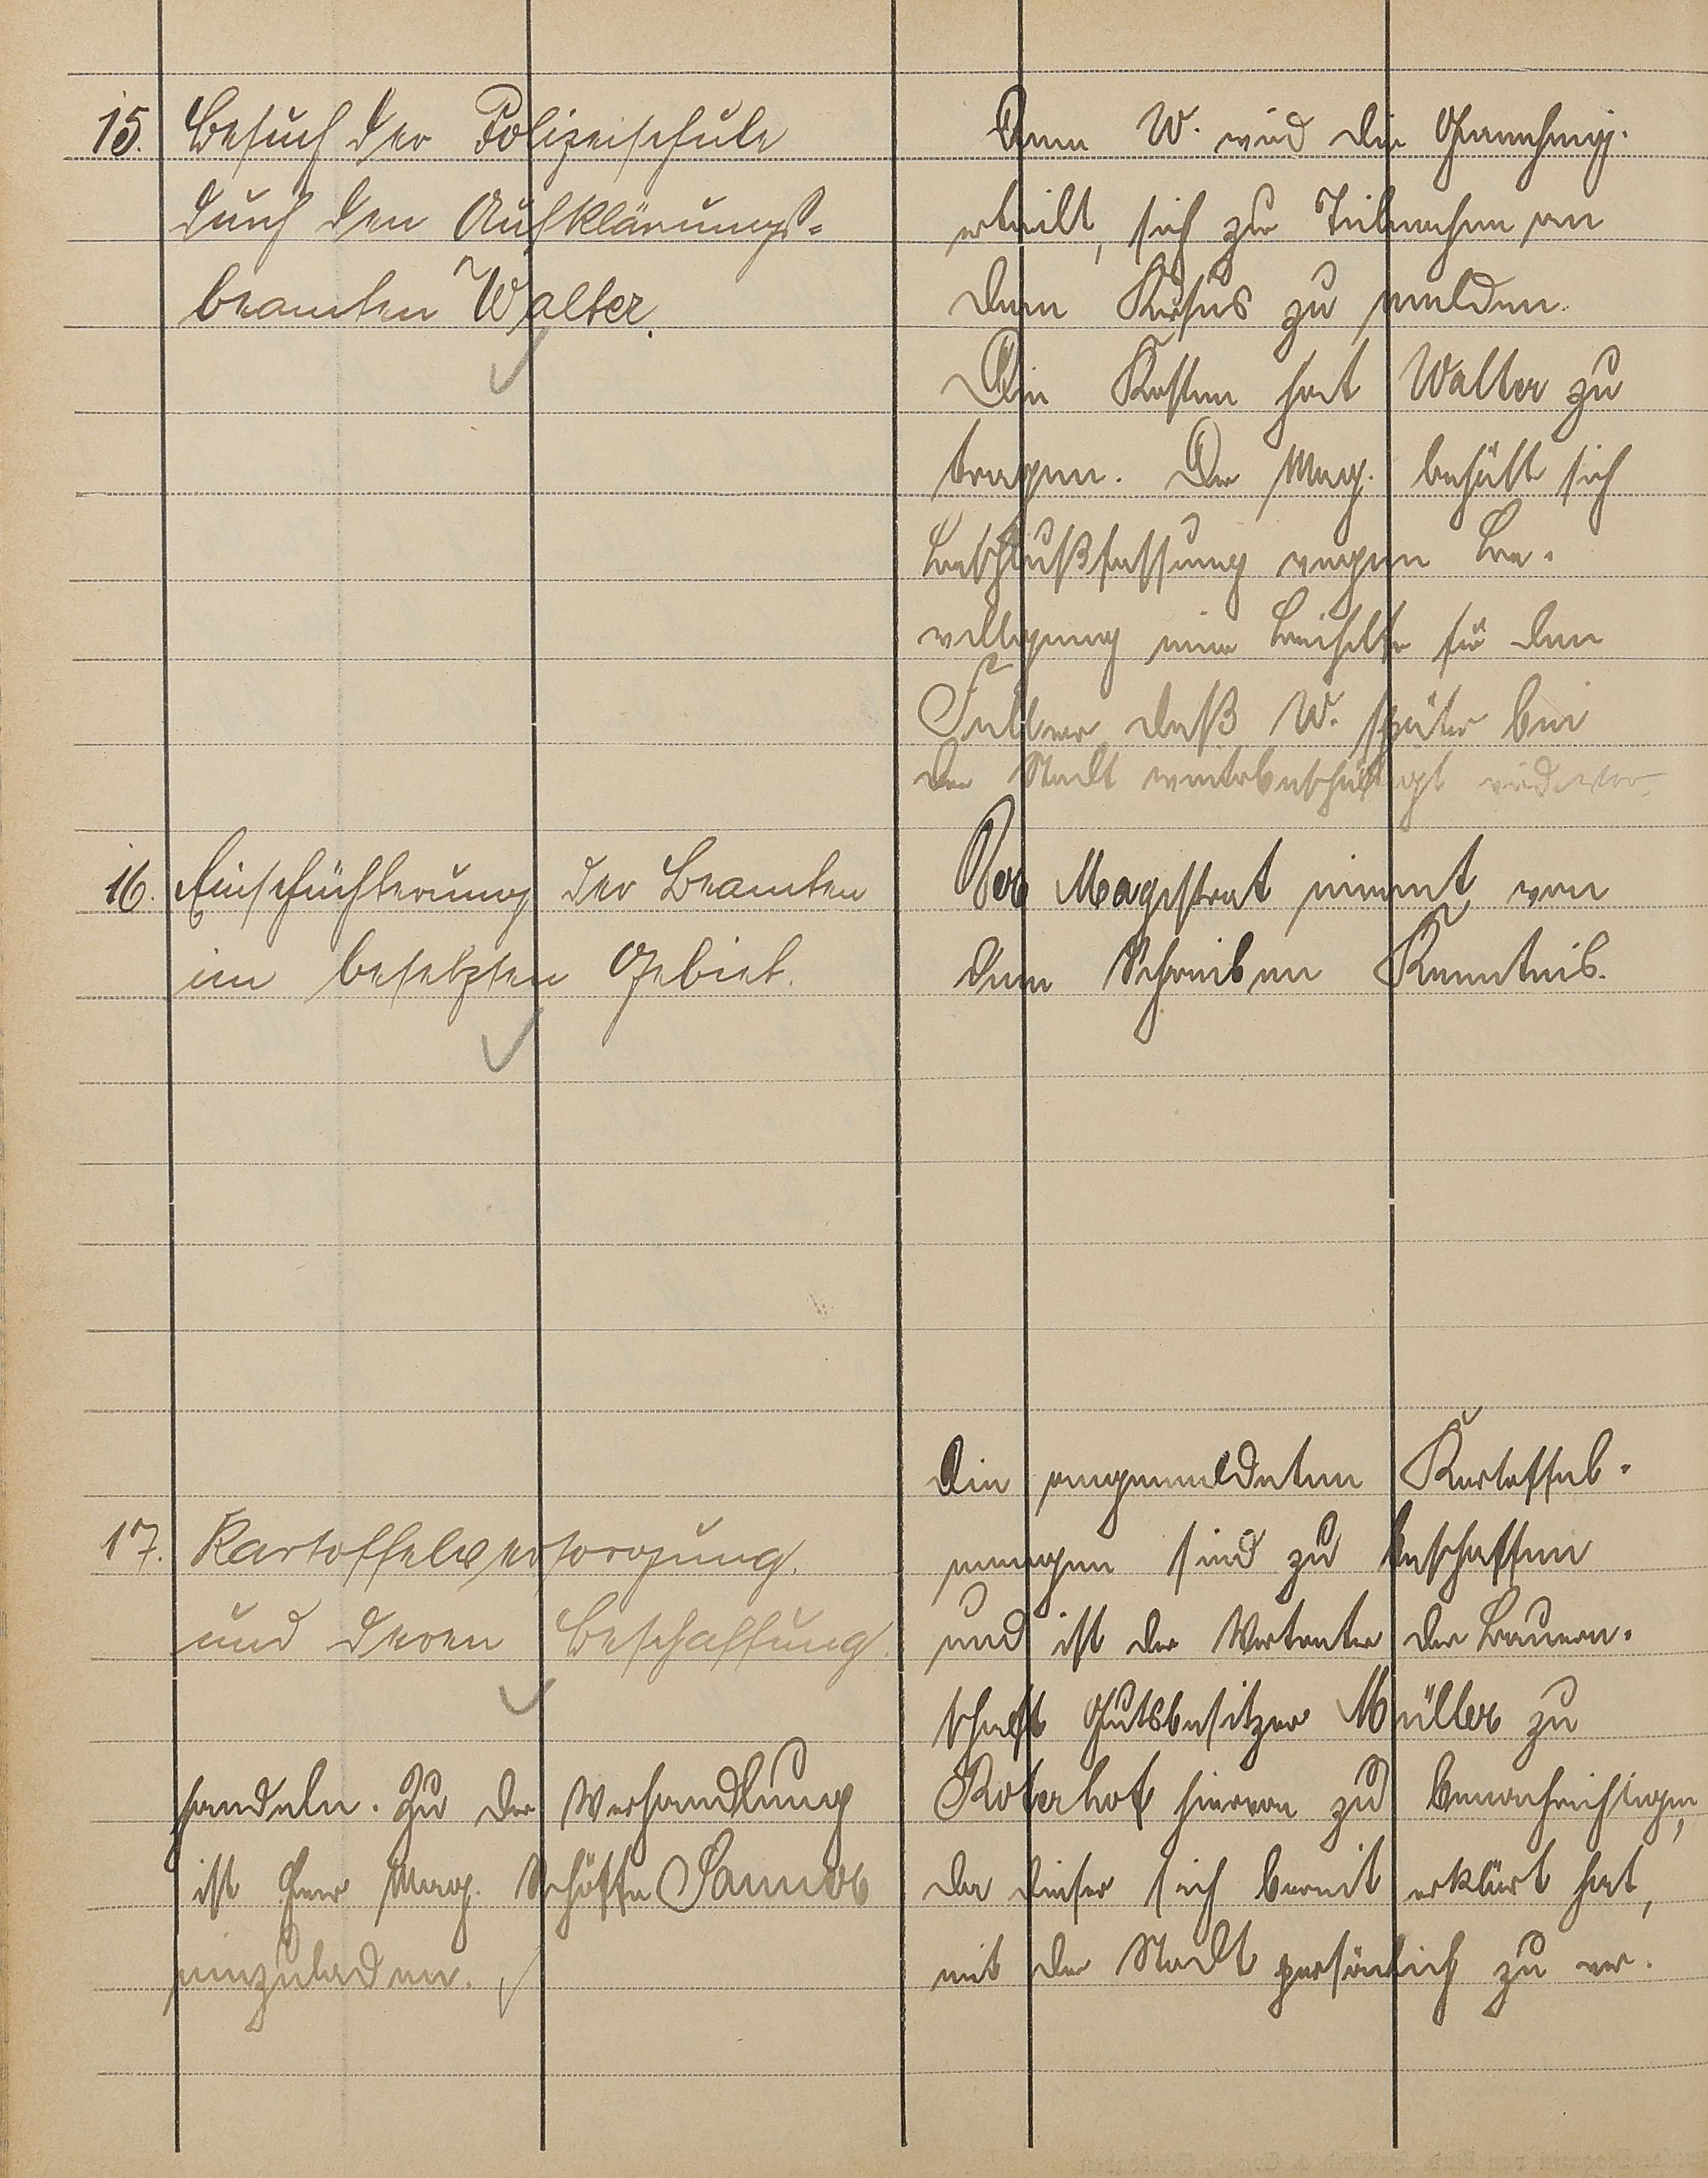 15. Besuch der Polizeischule
durch den Aufklärungs=
beamten Walter.
Dem W. wird die Genehmig.
erteilt, sich zur Teilnahme an
dem Kursus zu melden.
Die Kosten hat Walter zu
tragen. Der Mag. behält sich
Beschlußfassung wegen Be-
willigung einer Beihilfe für den
Fall vor daß W. später bei
der Stadt weiterbeschäftigt wird
16. Einschüchterung der Beamten
im besetzten Gebiet.
Der Magistrat nimmt von
dem Schreiben Kenntnis.
17. Kartoffelversorgung
und deren Beschaffung.
Die angemeldeten Kartoffel-
mengen sind zu beschaffen
und ist der Vertreter der Bauern-
schaft Gutsbesitzer Müller zu
Roterhof hiervon zu benachrichtigen,
da dieser sich bereit erklärt hat,
mit der Stadt persönlich zu ver-
handeln. Zu der Verhandlung
ist Herr Mag. Schöffe
einzuladen.